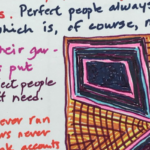 s. Perfect people always
which is, of course, n
heir gar-
s put
ect people
f need.
ever ran
rs never
nk accounts